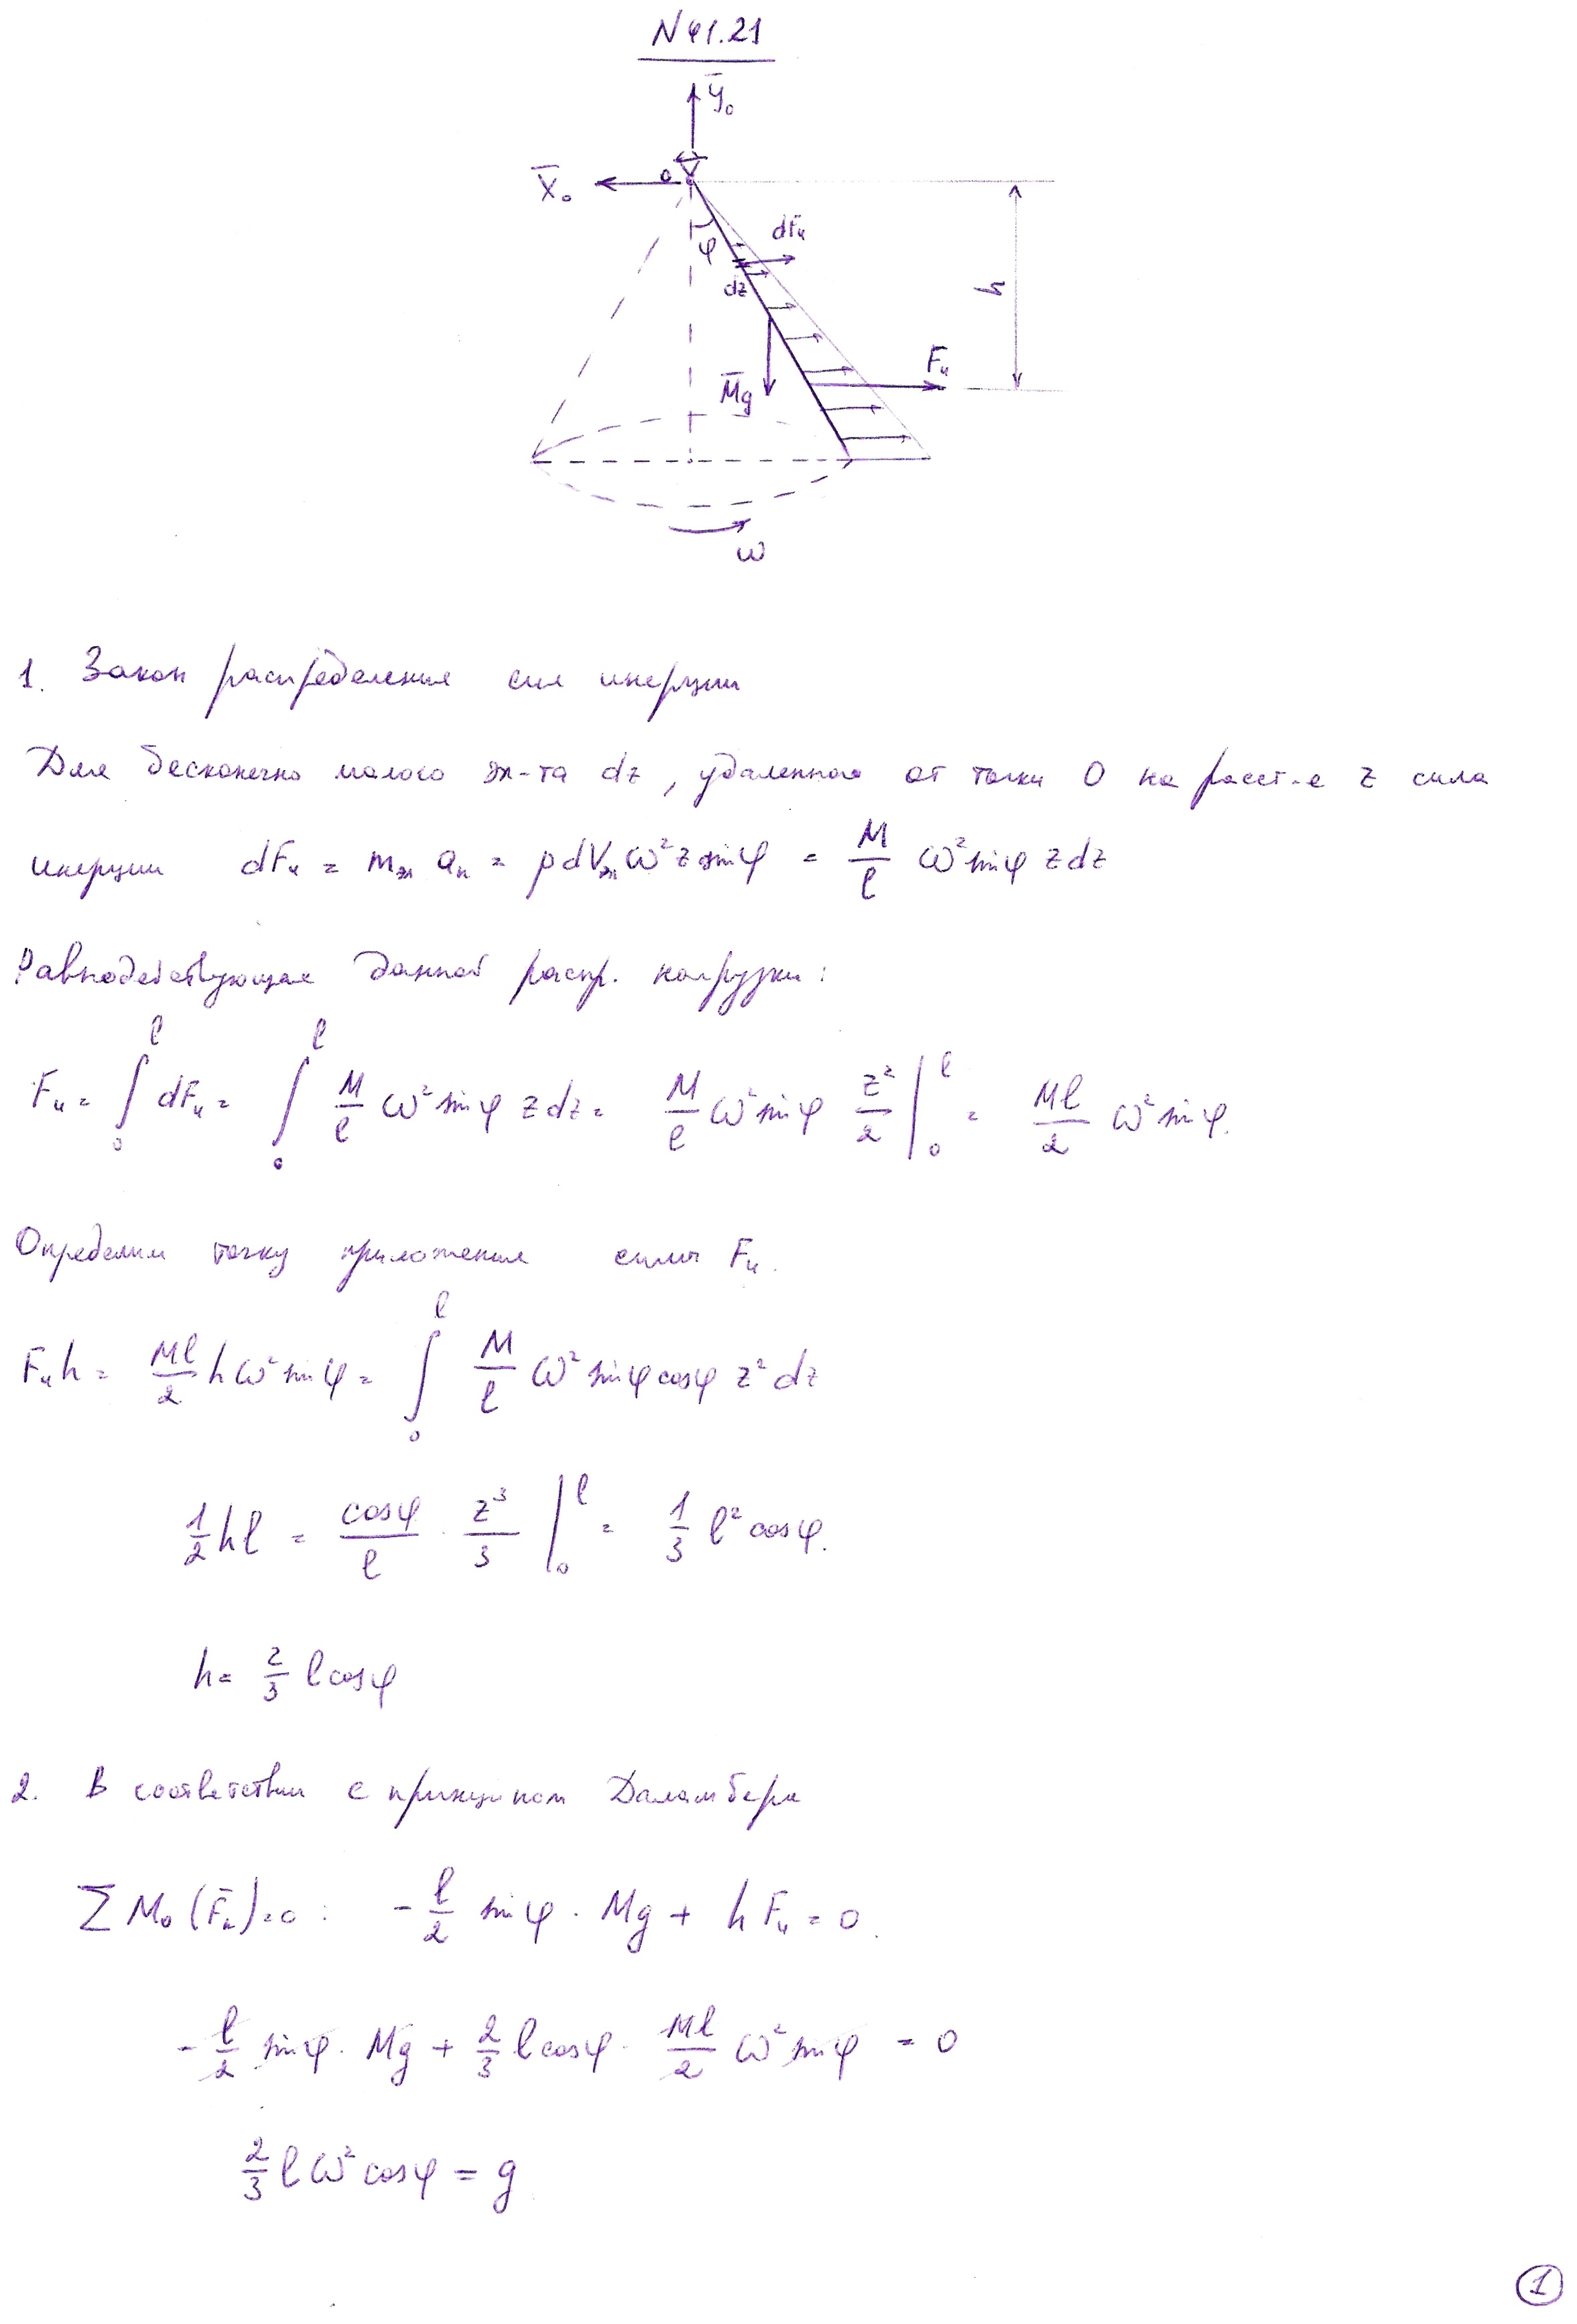 N 41.21
Y̅₀
X̅₀
0
φ
dF̅и
dz
h
M̅g
Fи
ω
1. Закон распределения сил инерции
Для бесконечно малого эл-та dz, удаленного от точки O на расст-е z сила
инерции dFи = mэл aп = ρ dVэл ω² z sinφ = M/l ω² sinφ z dz
Равнодействующая данной распр. нагрузки:
Fи = ∫₀ˡ dFи = ∫₀ˡ M/l ω² sinφ z dz = M/l ω² sinφ z²/2 |₀ˡ = Ml/2 ω² sinφ.
Определим точку приложения силы Fи.
Fи h = Ml/2 h ω² sinφ = ∫₀ˡ M/l ω² sinφ cosφ z² dz
1/2 hl = cosφ/l · z³/3 |₀ˡ = 1/3 l² cosφ.
h = 2/3 l cosφ
2. В соответствии с принципом Даламбера
Σ M₀ (F̅к) = 0 : - l/2 sinφ · Mg + h Fи = 0.
- l/2 sinφ · Mg + 2/3 l cosφ · Ml/2 ω² sinφ = 0
2/3 l ω² cosφ = g
1